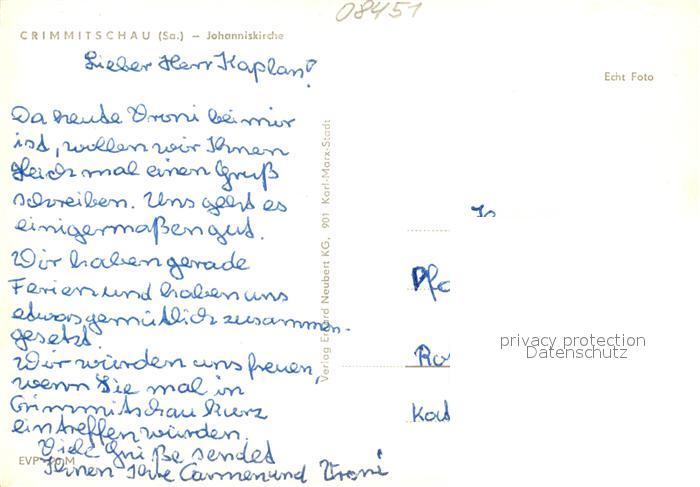 08451
CRIMMITSCHAU (Sa.) – Johanniskirche
Lieber Herr Kaplan!
Echt Foto
Da heute Vroni bei mir
ist, wollen wir Ihnen
gleich mal einen Gruß
schreiben. Uns geht es
einigermaßen gut.
Wir haben gerade
Ferien und haben uns
etwas gemütlich zusammen-
gesetzt.
Wir würden uns freuen,
wenn Sie mal in
Crimmitschau kurz
eintreffen würden.
Viele Grüße sendet
Ihnen Ihre Carmen und Vroni
EVP
M
Verlag Erhard Neubert KG, 901 Karl-Marx-Stadt
Pfa
Ro
privacy protection
Datenschutz